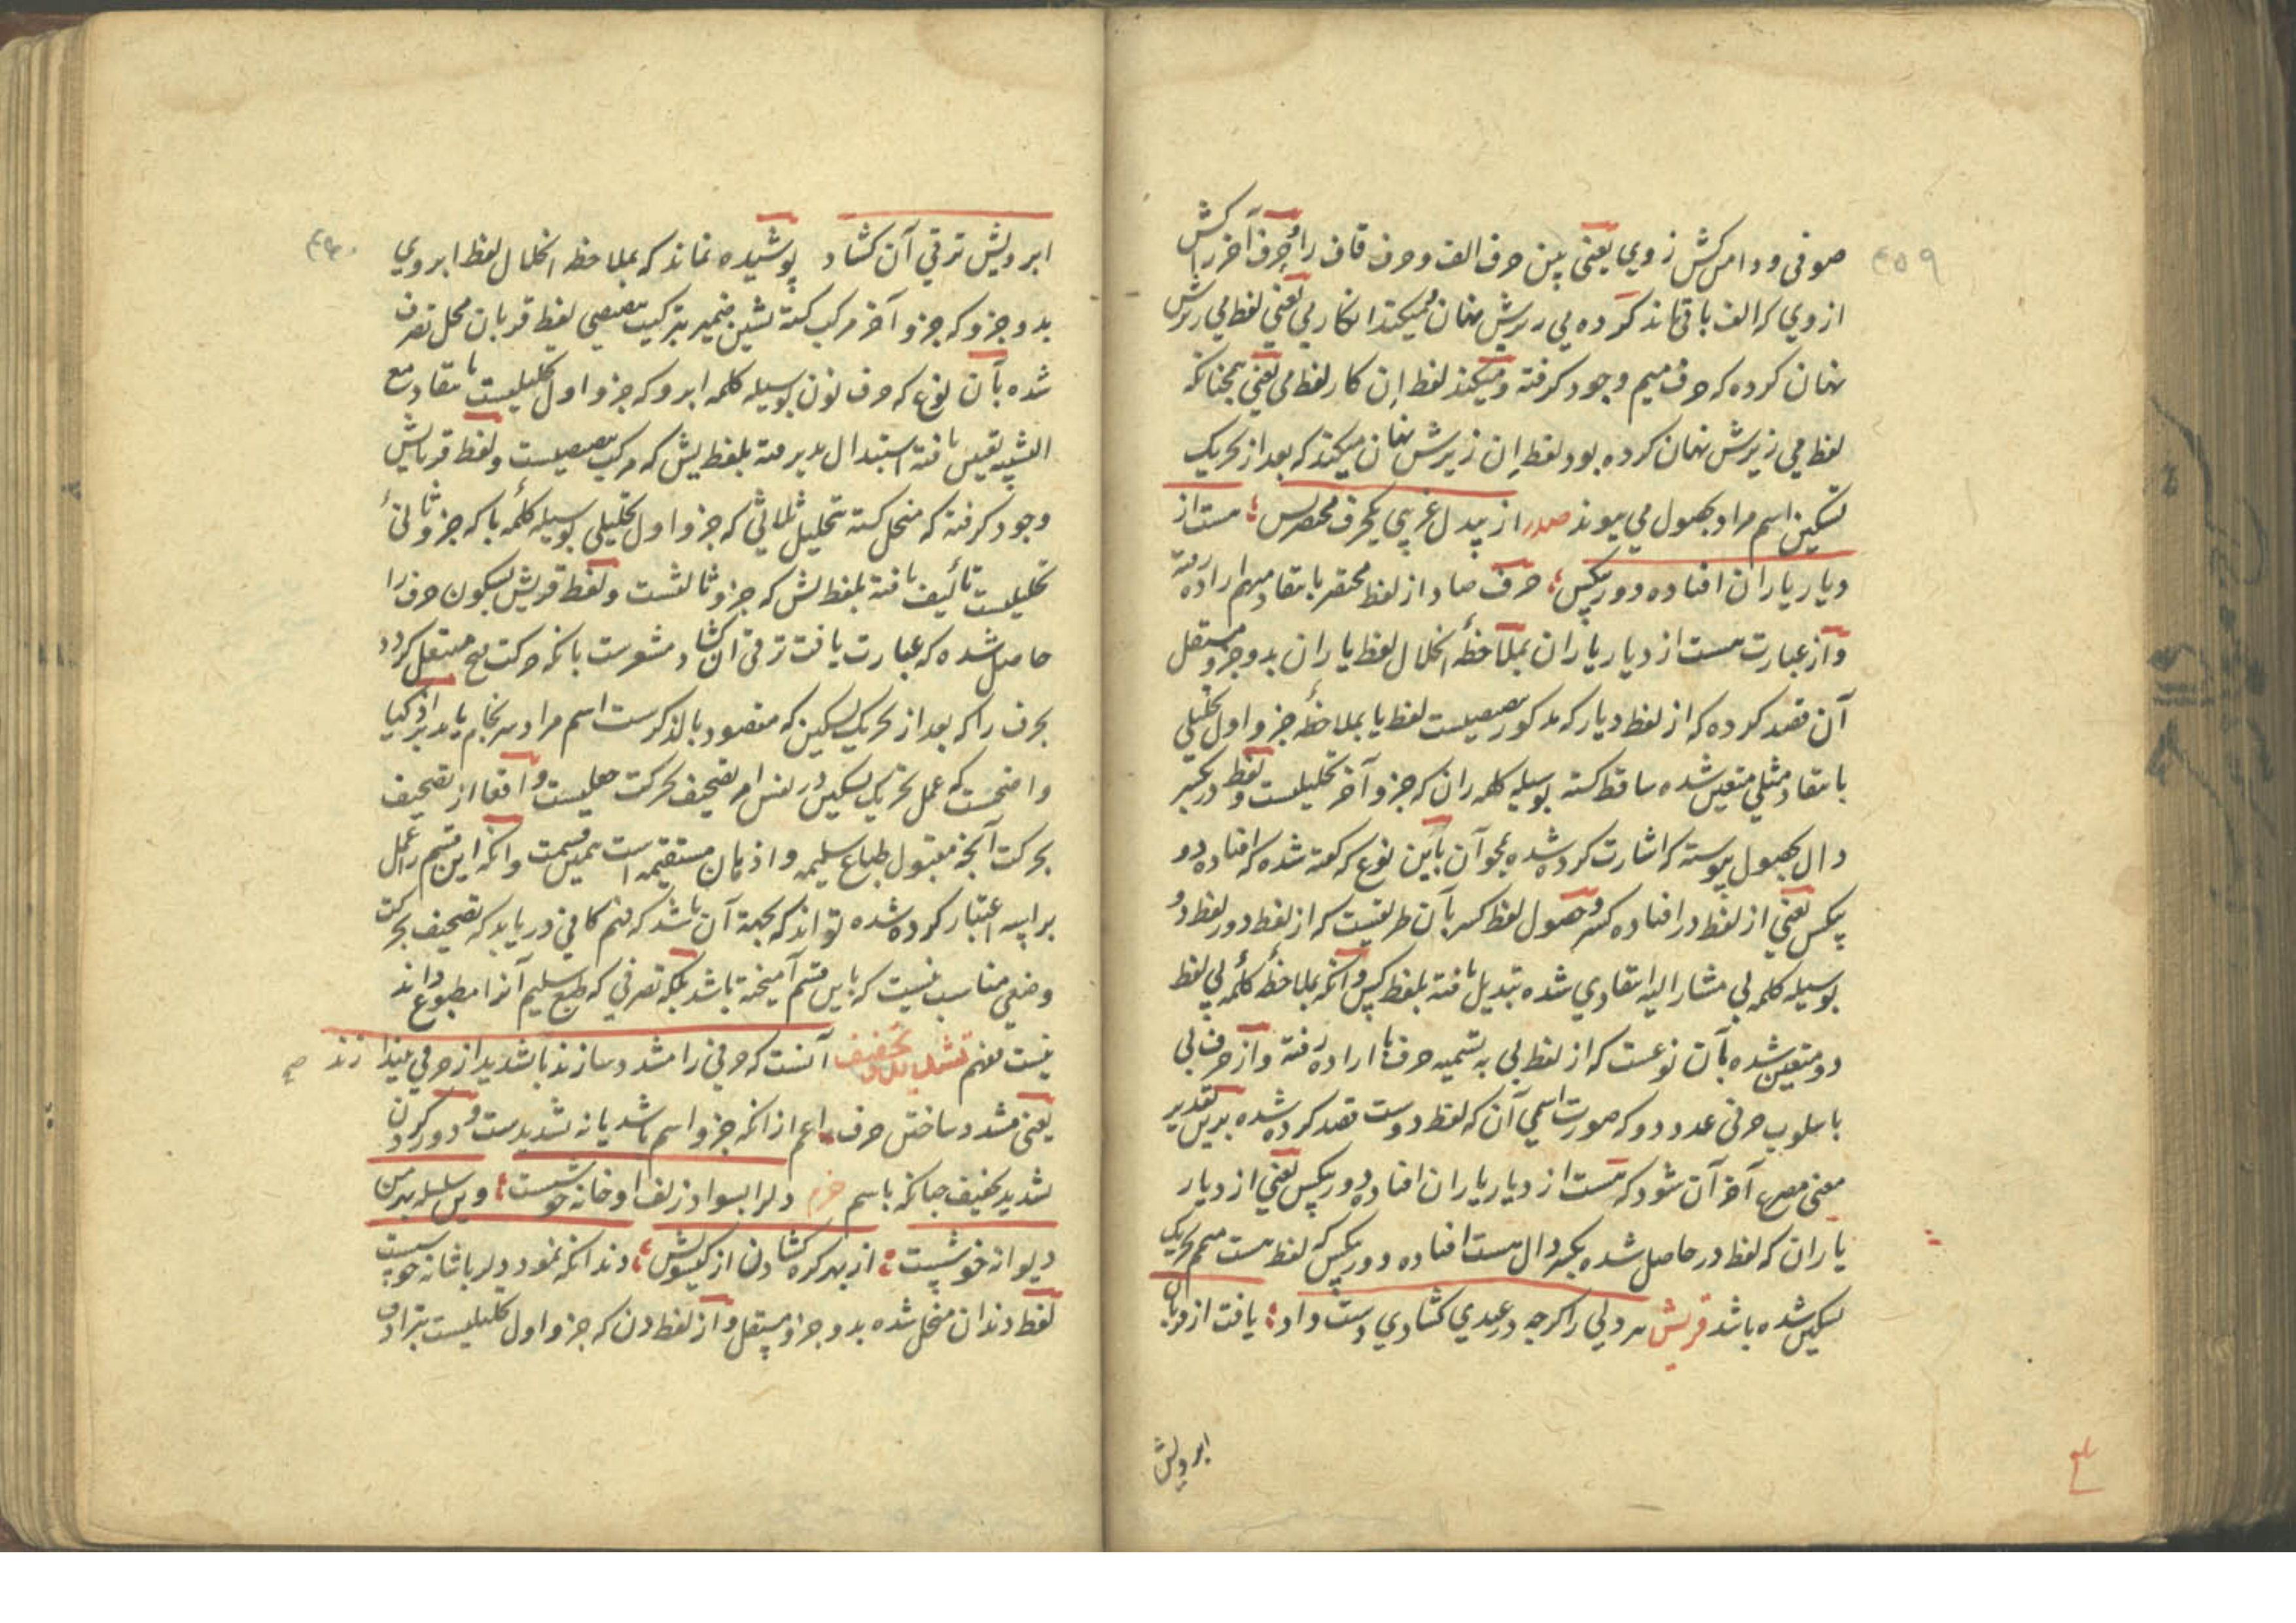 صوفی و دامن کش ز وی یعنی بین حرف الف و حرف قاف را حرف آخر را کش
از وی که الف باقی ماند کرده بی زیرش نهان میکند انکار بی یعنی لفظ می زیرش
نهان کرده که حرف میم وجود گرفته و میکند لفظ اِن کار لفظ می یعنی همچنانکه
لفظ می زیرش نهان کرده بود لفظ اِن زیرش نهان میکند که بعد از تحریک
تسکین اسم مراد بحصول می پیوندد صدر از بیدل غریبی یک حرف مختصر بس مست از
دیار یاران افتاده دور بیکس حرف صاد از لفظ مختصر بانتقاد مبهم اراده رفته
و از عبارت مست از دیار یاران بملاحظهٔ انحلال لفظ یاران بدو جزو مستقل
آن قصد کرده که از لفظ دیار که مذکور تنصیصیست لفظ یا بملاحظهٔ جزو اول تحلیلی
بانتقاد مثلی متعین شده ساقط گشته بوسیله کلمه ران که جزو آخر تحلیلیست و لفظ در بکسر
دال بحصول پیوسته که اشارت کرده شده بمحو آن باین نوع که گفته شده که افتاده دو
بیکس یعنی از لفظ در افتاده کسر و حصول لفظ کسر بآن طریقست که از لفظ دور لفظ دو
بوسیله کلمه بی مشار الیه انتقادی شده تبدیل یافته بلفظ کس و آنکه بملاحظهٔ کلمهٔ بی لفظ
دو متعین شده بآن نوعست که از لفظ بی به تسمیه حرف با اراده رفته و از حرف بی
باسلوب حرفی عدد دو که صورت اسمی آن که لفظ دوست قصد کرده شده برین تقدیر
معنی مصرع آخر آن شود که مست از دیار یاران افتاده دور بیکس یعنی از دیار
یاران که لفظ در حاصل شده بکسر دال مست افتاده دور بیکس که لفظ مست متمم تحریک
تسکین شده باشد قریش هر دلی را گرچه در عیدی گشادی دست داد یافت از قربان
ابرویش
ابرویش ترقی آن گشاد پوشیده نماند که بملاحظه انحلال لفظ ابروی
بدو جزو که جزو آخر مرکب گشته بشین ضمیر بترکیب تنصیصی لفظ قربان محل تصرف
شده بآن نوع که حرف نون بوسیله کلمه ابرو که جزو اول تحلیلیست بانتقاد مع
التشبیه تعین یافته استبدال پذیرفته بلفظ یش که مرکب تنصیصیست و لفظ قربایش
وجود گرفته که منحل گشته بتحلیل ثلاثی که جزو اول تحلیلی بوسیله کلمهٔ با که جزو ثانیٔ
تحلیلیست تألیف یافته بلفظ یش که جزو ثالثست و لفظ قریش بسکون حرف را
حاصل شده که عبارت یافت ترقی آن گشاد مشعرست بانکه حرکت فتح منتقل گردد
بحرف را که بعد از تحریک تسکین که مقصود بالذکر است اسم مراد سرانجام یابد بر اذکیا
واضحست که عمل تحریک تسکین در نفس امر تضعیف بحرکت عملیست و واقعا از تضعیف
بحرکت آنچه مقبول طباع سلیمه و اذهان مستقیمه است همین قسمت و آنکه این قسم را عمل
براسه اعتبار کرده شده تواند که بجهة آن باشد که فهم کافی دریابد که تضعیف بحرکت
وضعی مناسب نیست که باین قسم آمیخته باشد بلکه تصرفی که طبع سلیم آنرا مطبوع داند
نیست مفهم تشدید و تخفیف آنست که حرفی را مشدد سازند یا تشدید از حرفی بیندازند
یعنی مشدد ساختن حرف اعم از آنکه جزو اسم باشد یا نه تشدیدست و دور کردن
تشدید تخفیف چنانکه باسم خرم دلرا بسواد زلف او خانه خوشست وین سلسله بهر من
دیوانه خوشست از بهر گره گشادن از گیسویش دندانکه نمود دلربا شانه خوشست
لفظ دندان منحل شده بدو جزو مستقل و از لفظ دن که جزو اول تحلیلیست بترادف